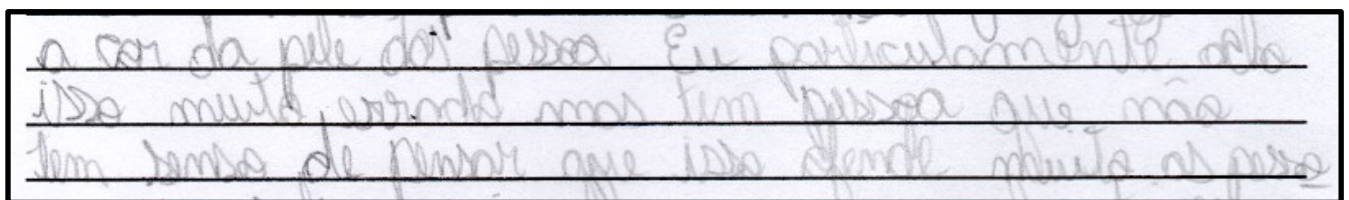 a cor da pele da pessoa Eu particulamente
isso muito errado mas tem pessoa que não
tem senso de pensar que isso afeta muito as pesso